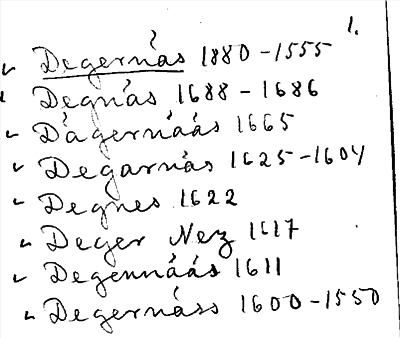 1.
Degernäs 1880-1555
Degnäs 1688-1686
Dägernääs 1665
Degarnäs 1625-1604
Degnes 1622
Deger Nez 1617
Degennääs 1611
Degernäss 1600-1550